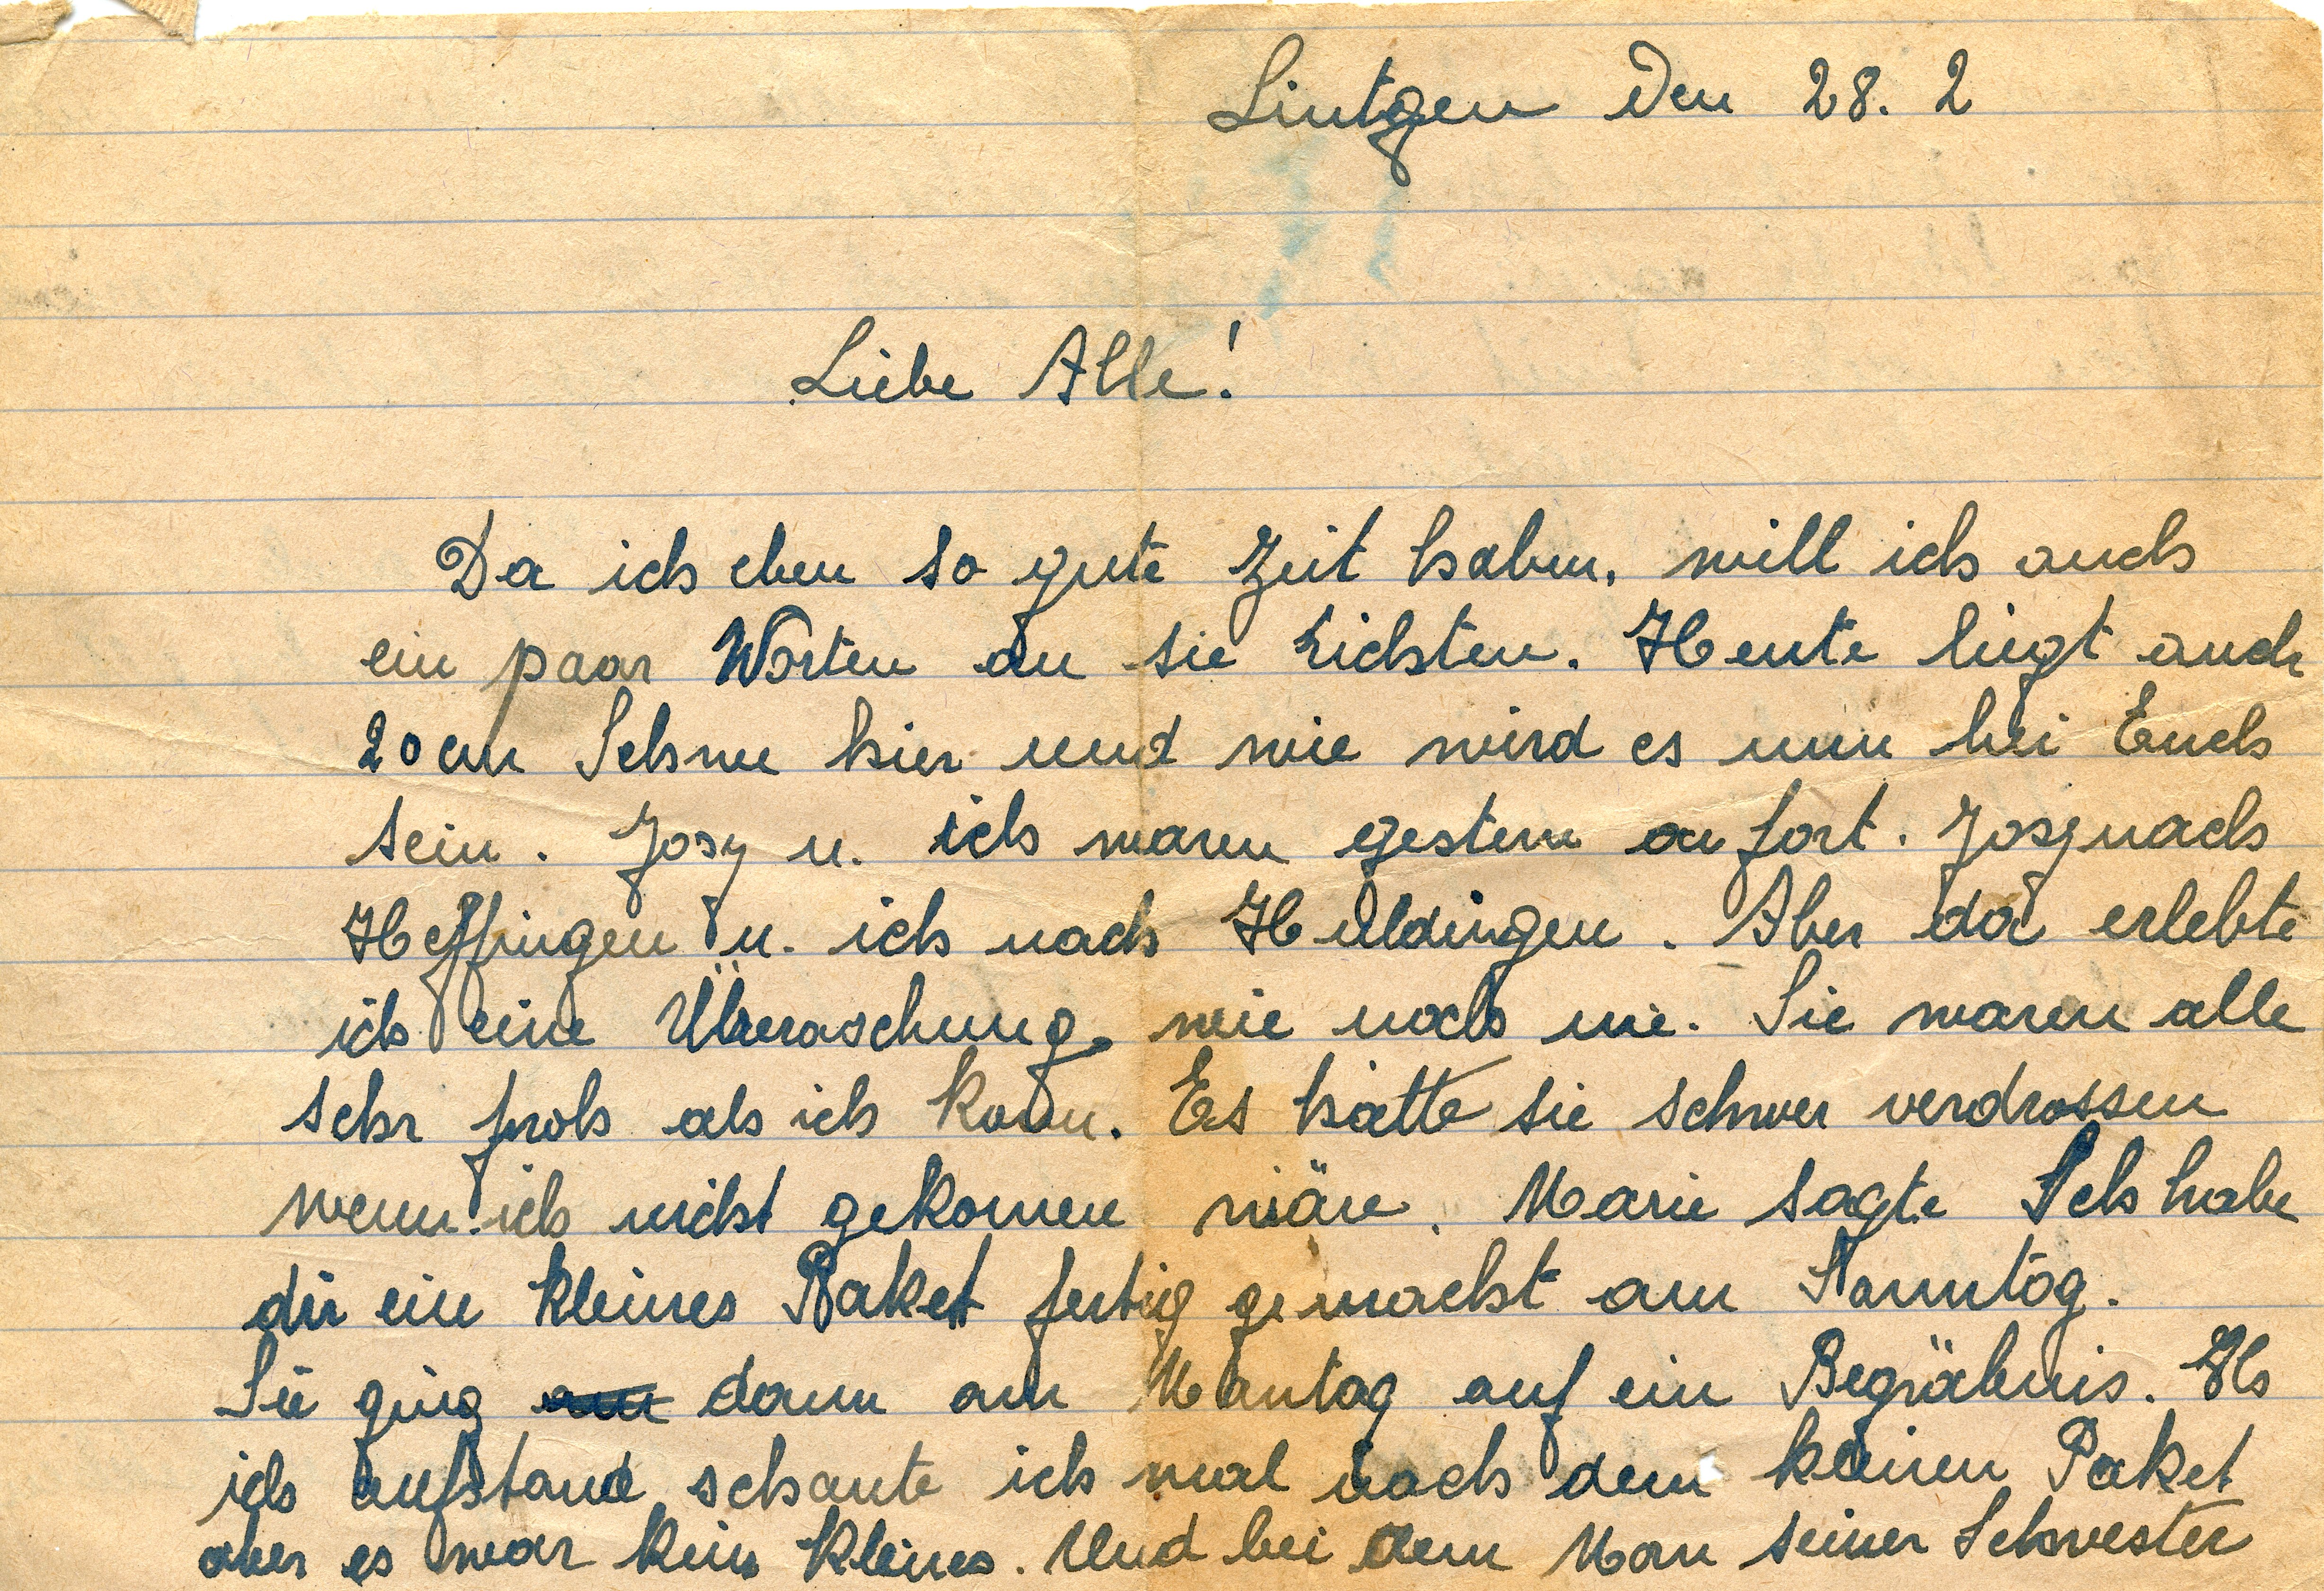 Lintgen den 28. 2
Liebe Alle!
Da ich eben so gute Zeit haben, will ich auch
ein paar Worten an sie richten. Heute liegt auch
20 cm Schnee hier und wie wird es nun bei Euch
sein. Josy u. ich waren gestern fort. Josy nach
Heffingen u. ich nach Huldingen. Aber da erlebte
ich eine Überaschung wie noch nie. Sie waren alle
sehr froh als ich kam. Es hätte sie schwer verdrossen
wenn ich nicht gekomen wäre. Marie sagte Ich habe
dir ein kleines Paket fertig gemacht am Sonntag.
Sie ging dann am Montag auf ein Begräbnis. Als
ich aufstand schaute ich mal nach dem kleinen Paket
aber es war kein kleines. Und bei dem Man seiner Schwester